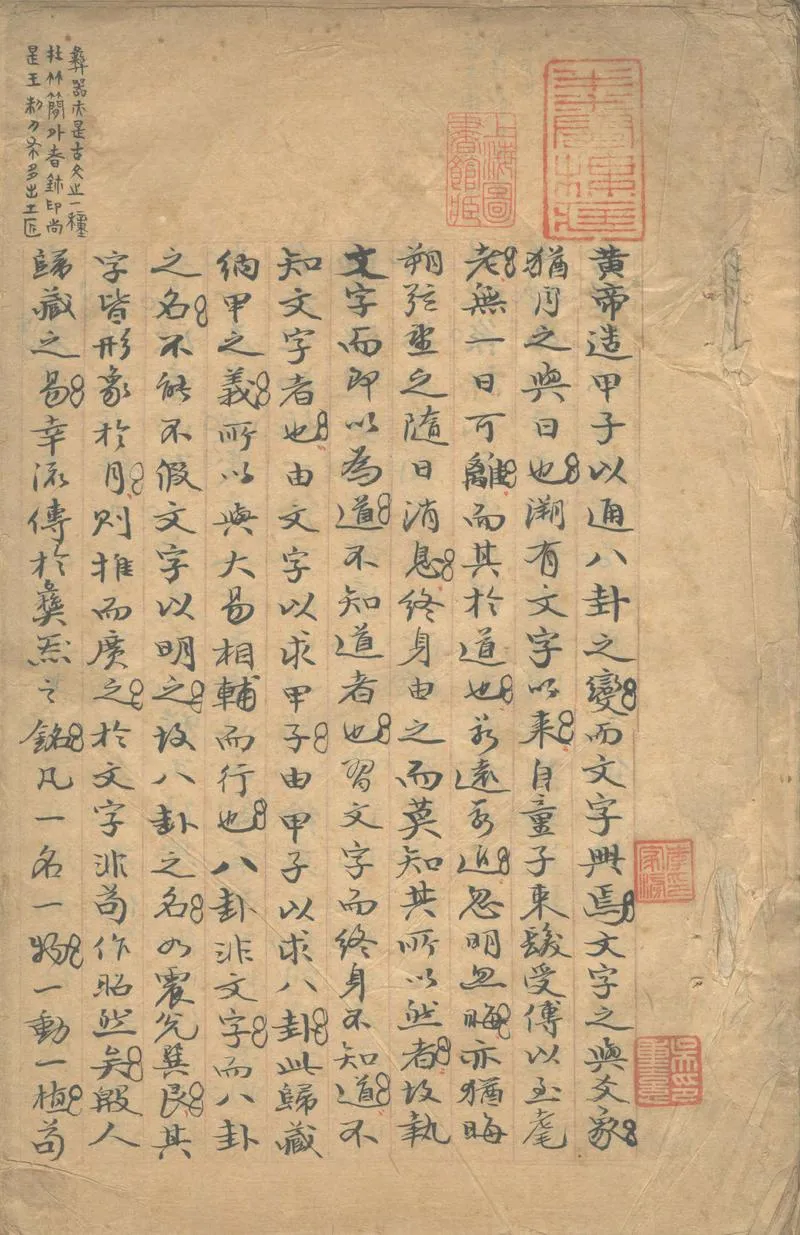 黃帝造甲子以通八卦之變而文字興焉文字之與爻象
猶月之與日也溯有文字以來自童子束髮受傳以至耄
老無一日可離而其於道也若遠若近忽明忽晦亦猶晦
朔弦望之隨日消息終身由之而莫知其所以然者故執
文字而即以為道不知道者也習文字而終身不知道不
知文字者也由文字以求甲子由甲子以求八卦此歸藏
納甲之義所以與大易相輔而行也八卦非文字而八卦
之名不能不假文字以明之故八卦之名如震兌巽艮其
字皆形象於月則推而廣之於文字非苟作昭然矣殷人
歸藏之易幸流傳於彝器之銘凡一名一物一動一植苟
彝器亦是古文之一種
簡外者鉨印尚
是王多出工匠
上海圖書館藏